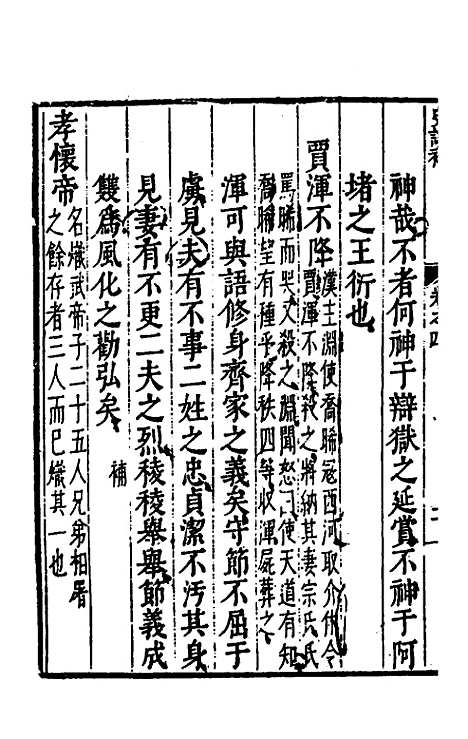 神哉不者何神于辯獄之延賞不神于阿
堵之王衍也
賈渾不降 漢主淵使喬晞冦西河取介休令
賈渾不降殺之將納其妻宗氏氏
罵晞而哭又殺之淵聞怒曰使天道有知
喬晞望有種乎降秩四等收渾屍葬之
渾可與語修身齊家之義矣守節不屈于
虜見夫有不事二姓之忠貞潔不汚其身
見妻有不更二夫之烈稜稜舉舉節義成
雙為風化之勸弘矣 補
孝懷帝 名熾武帝子二十五人兄弟相屠
之餘存者三人而已熾其一也
卷之四